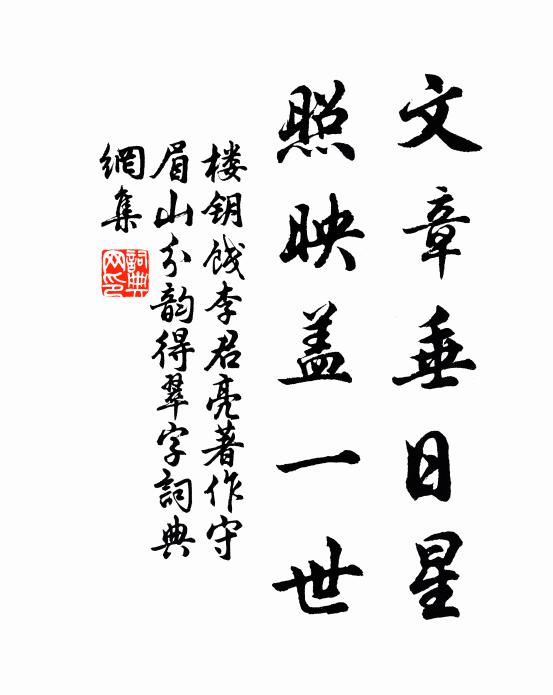 文章垂日星
照映盖一世
楼钥饯李君亮著作守
眉山分韵得翠字詞典
網集
詞典
网印